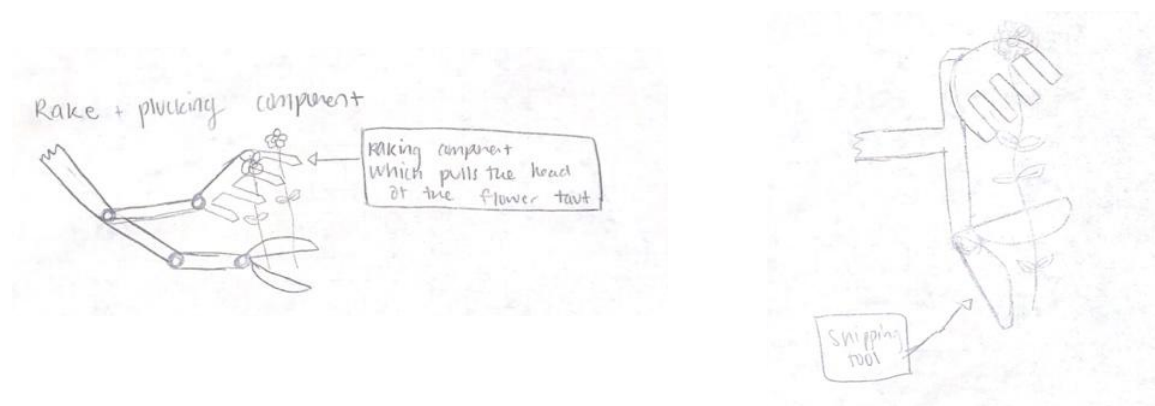 Rake + plucking component
raking component
which pulls the head
of the flower taut
snipping
tool